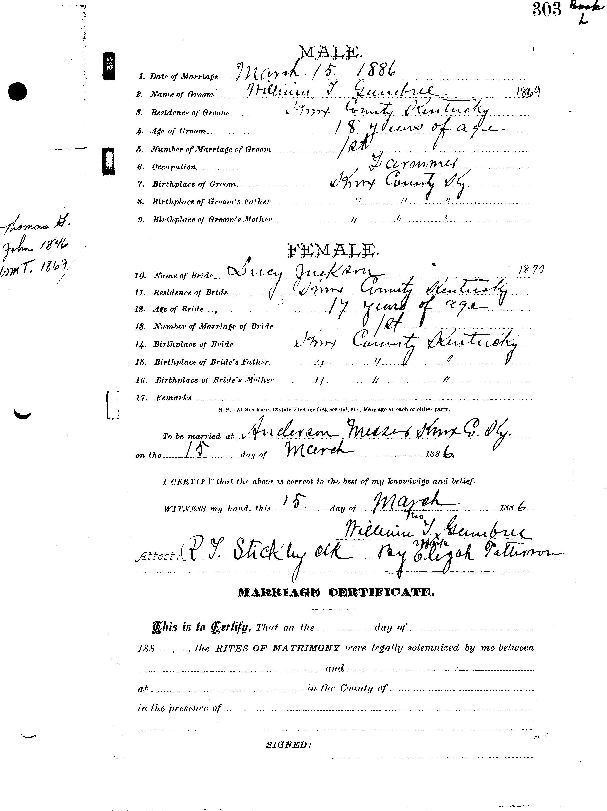 303 Book L
MALE.
1. Date of Marriage March 15 1886
2. Name of Groom William T Gambrel 1869
3. Residence of Groom Knox County Kentucky
4. Age of Groom 18 years of age
5. Number of Marriage of Groom 1st
6. Occupation Farmmer
7. Birthplace of Groom Knox County Ky.
8. Birthplace of Groom's Father " " "
9. Birthplace of Groom's Mother " " "
John 1846
Wm T. 1869
FEMALE.
10. Name of Bride Lucy Jackson
11. Residence of Bride Knox County Kentucky
12. Age of Bride 17 years of age
13. Number of Marriage of Bride 1st
14. Birthplace of Bride Knox County Kentucky
15. Birthplace of Bride's Father " " "
16. Birthplace of Bride's Mother " " "
17. Remarks
To be married at Anderson Messer Knox Co Ky.
on the 15 day of March 1886
I CERTIFY that the above is correct to the best of my knowledge and belief.
WITNESS my hand, this 15 day of March 1886
William T. his x mark Gambrel
Attest: R T. Stickley clk By Elizah Patterson
MARRIAGE CERTIFICATE.
This is to Certify, That on the day of
188 , the RITES OF MATRIMONY were legally solemnized by me between
and
at in the County of
in the presence of
SIGNED: